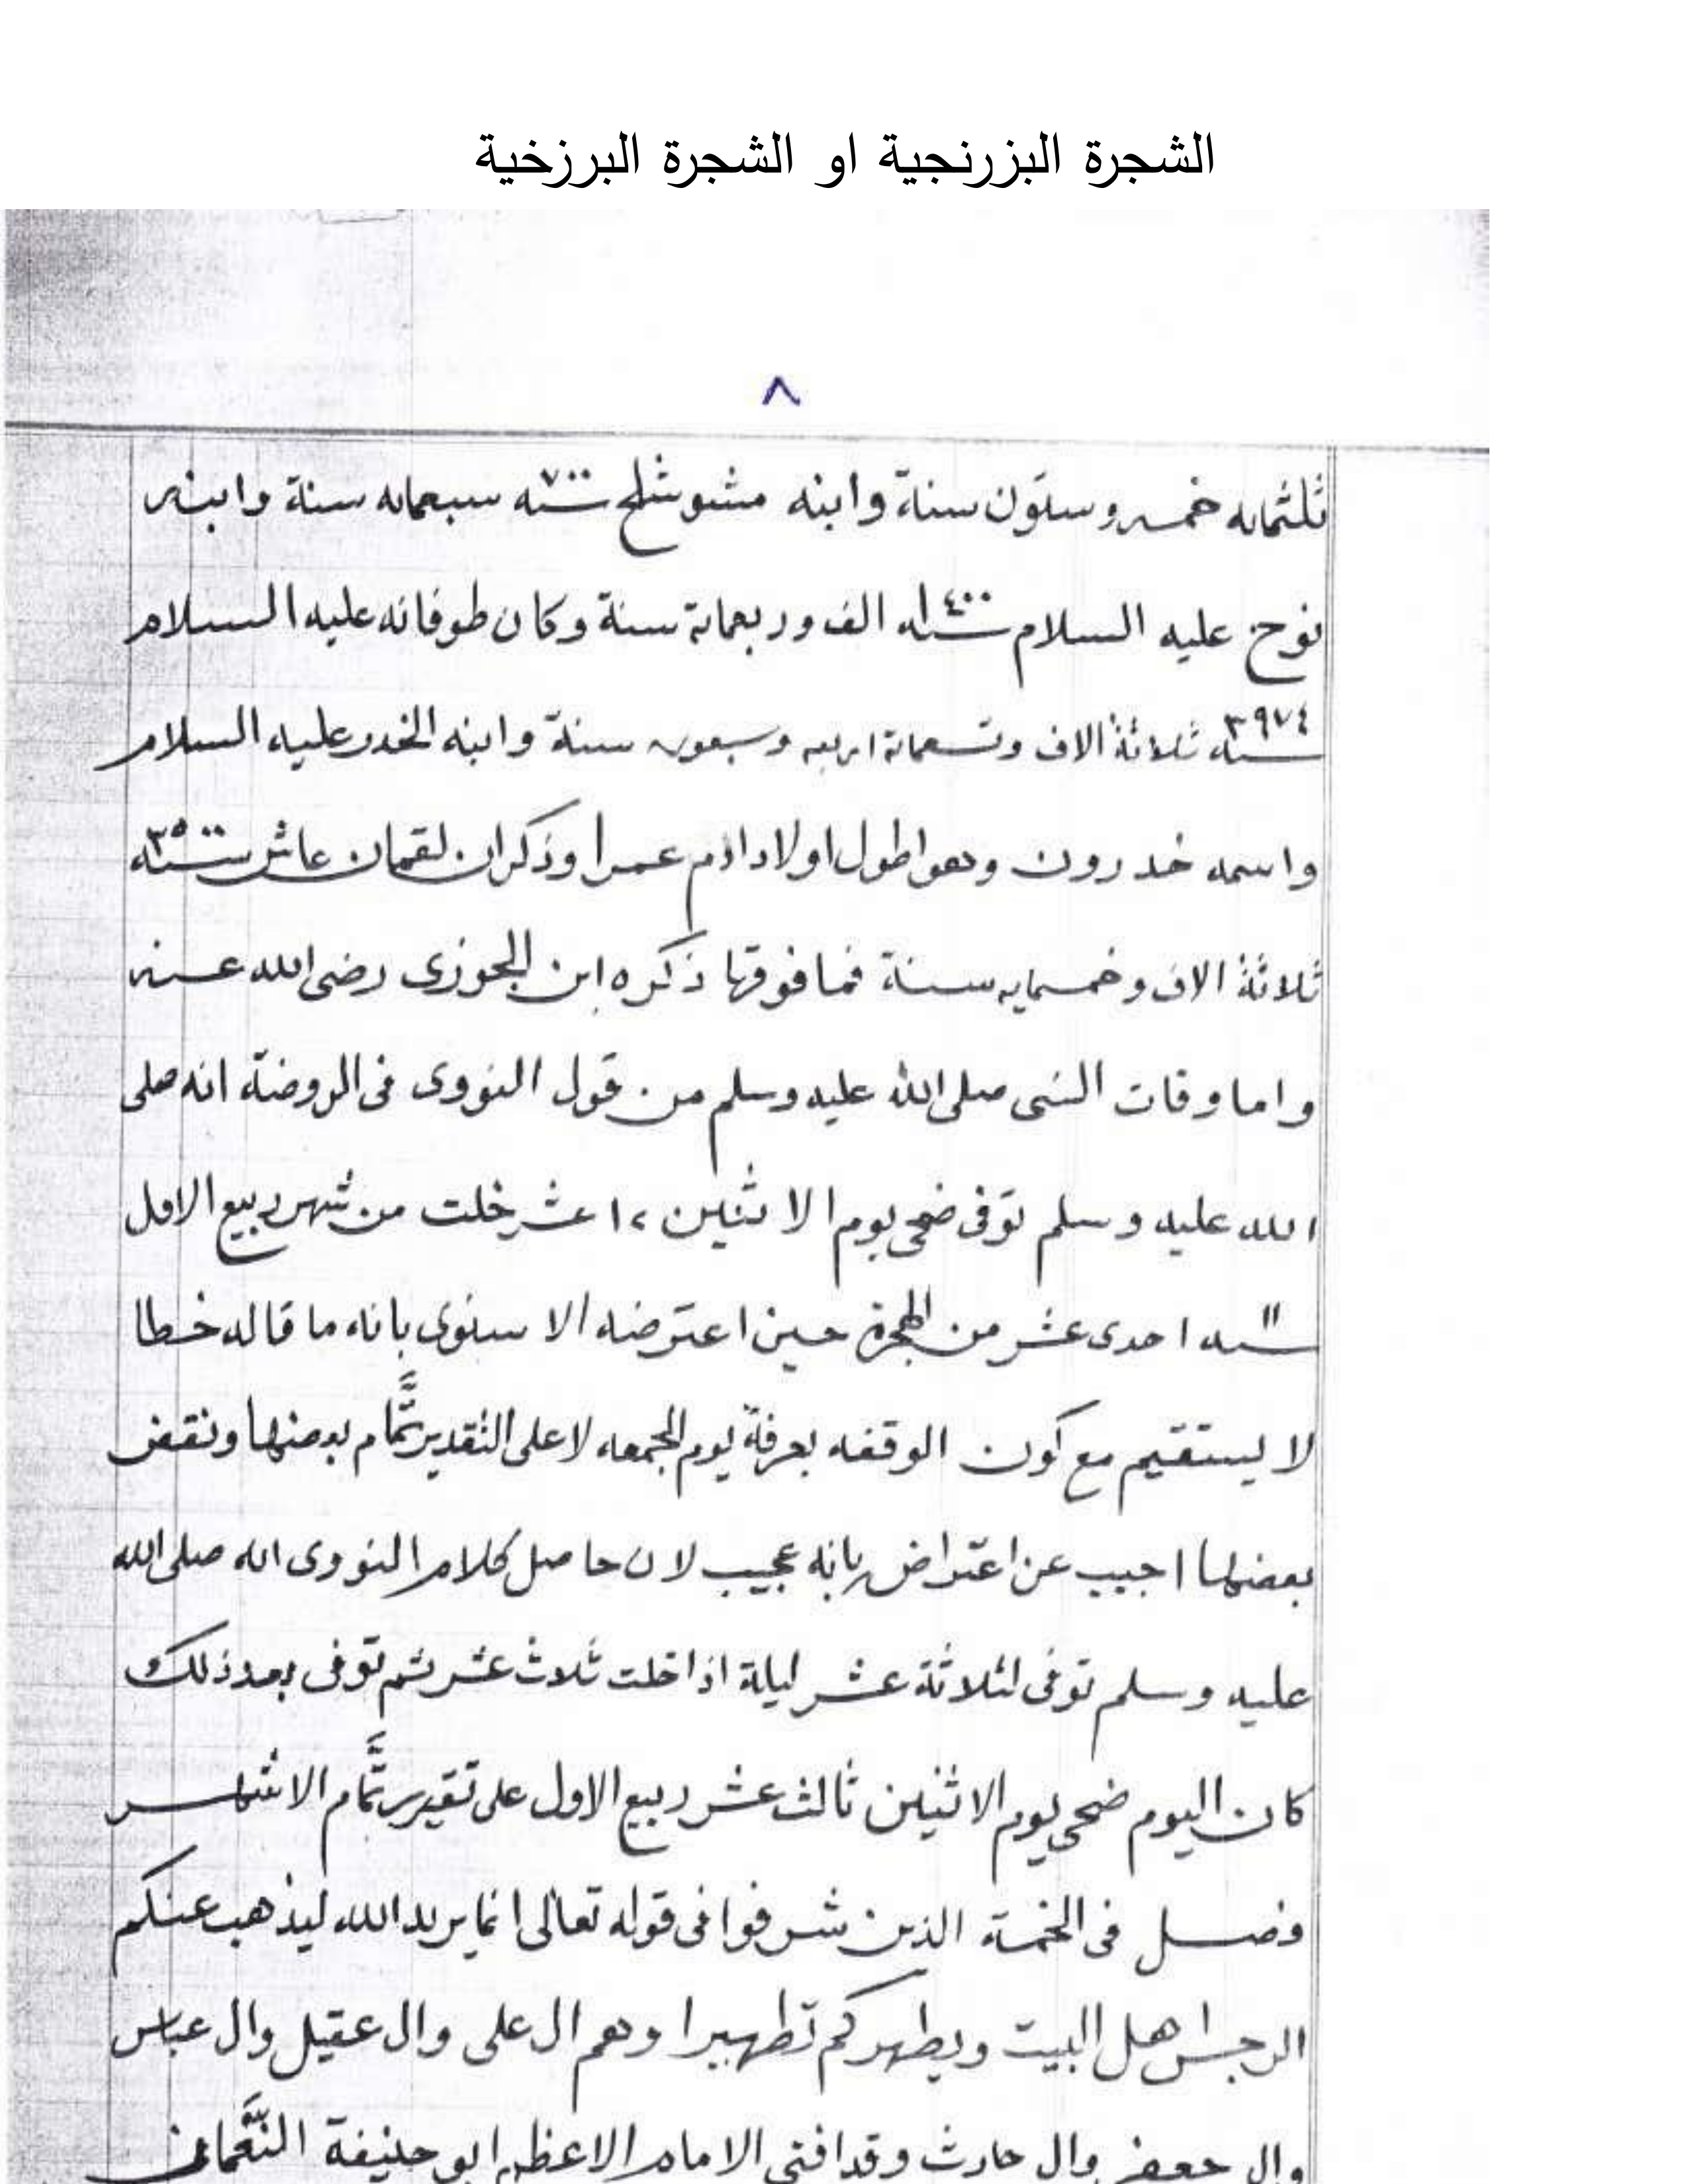 الشجرة البزرنجية او الشجرة البرزخية
٨
ثلثمايه خمس وستون سنة وابنه متوشلح ٧٠٠ سنه سبعمايه سنة وابنه
نوح عليه السلام ١٤٠٠ سنه الف وربعماية سنة وكان طوفانه عليه السلام
٣٩٧٤ سنه ثلاثة الاف وتسعماية اربعه وسبعون سنة وابنه الخدر عليه السلام
واسمه خدرون وهو اطول اولاد ادم عمرا وذكر ان لقمان عاش ٣٥٠٠ سنه
ثلاثة الاف وخمسمايه سنة فما فوقها ذكره ابن الجوزى رضى الله عنه
واما وفات النبى صلى الله عليه وسلم من قول النووى فى الروضة انه صلى
الله عليه وسلم توفى ضحى يوم الاثنين ١٢ عشر خلت من شهر ربيع الاول
١١ سنه احدى عشر من الهجرة حين اعترضه الاسنوى بانه ما قاله خطا
لا يستقيم مع كون الوقفه بعرفة يوم الجمعه لا على التقدير تمام بعضها ونقض
بعضها اجيب عن اعتراض بانه عجيب لان حاصل كلام النووى انه صلى الله
عليه وسلم توفى لثلاثة عشر ليلة اذا خلت ثلاث عشر ثم توفى بعد ذلك
كان اليوم ضحى يوم الاثنين ثالث عشر ربيع الاول على تقرير تمام الاشهر
فصل فى الخمسة الذين شرفوا فى قوله تعالى انما يريد الله ليذهب عنكم
الرجس اهل البيت ويطهركم تطهيرا وهم ال على وال عقيل وال عباس
وال جعفر وال حارث وقد افتى الامام الاعظم ابو حنيفة النعمان